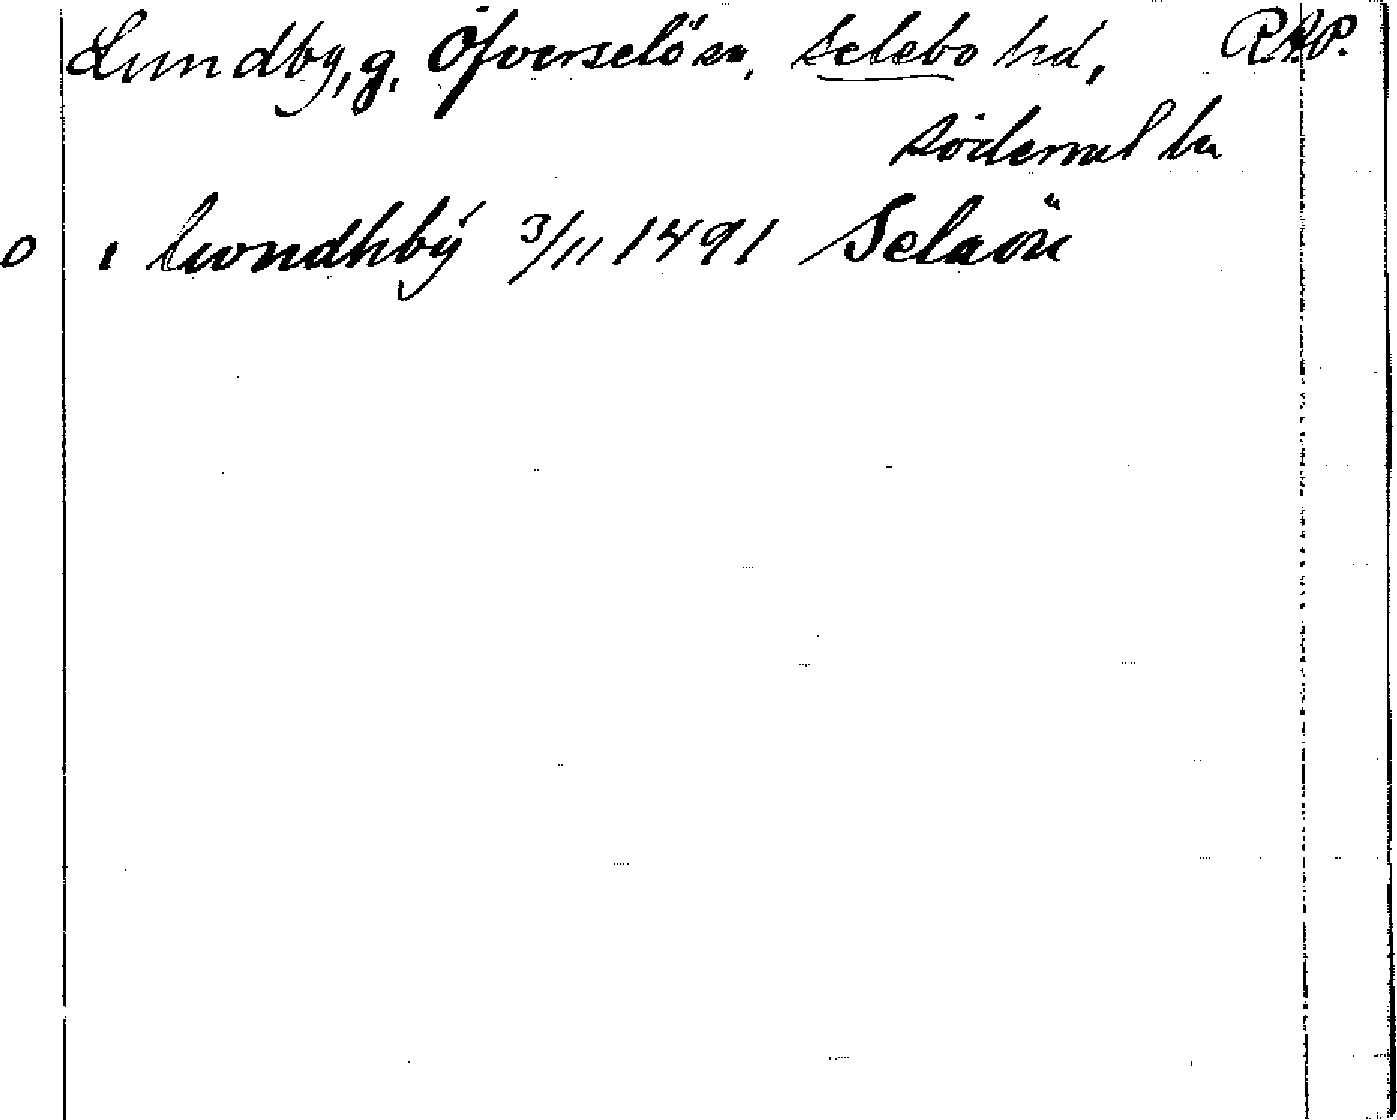 Lundby, g. Öfverselö sn, Selebo hd, RAP.
Söderml ln
o i lwndhbÿ 3/11 1491 Selaön